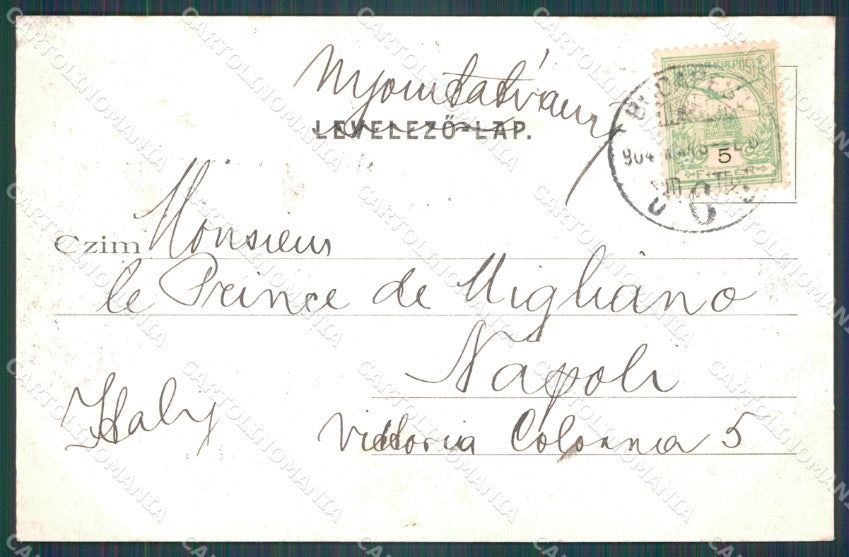 Nyomtatvány
LEVELEZŐ-LAP.
5
FILLÉR
Czim Monsieur
le Prince de Migliano
Napoli
Italy
Vittoria Colonna 5
CARTOLINOMANIA